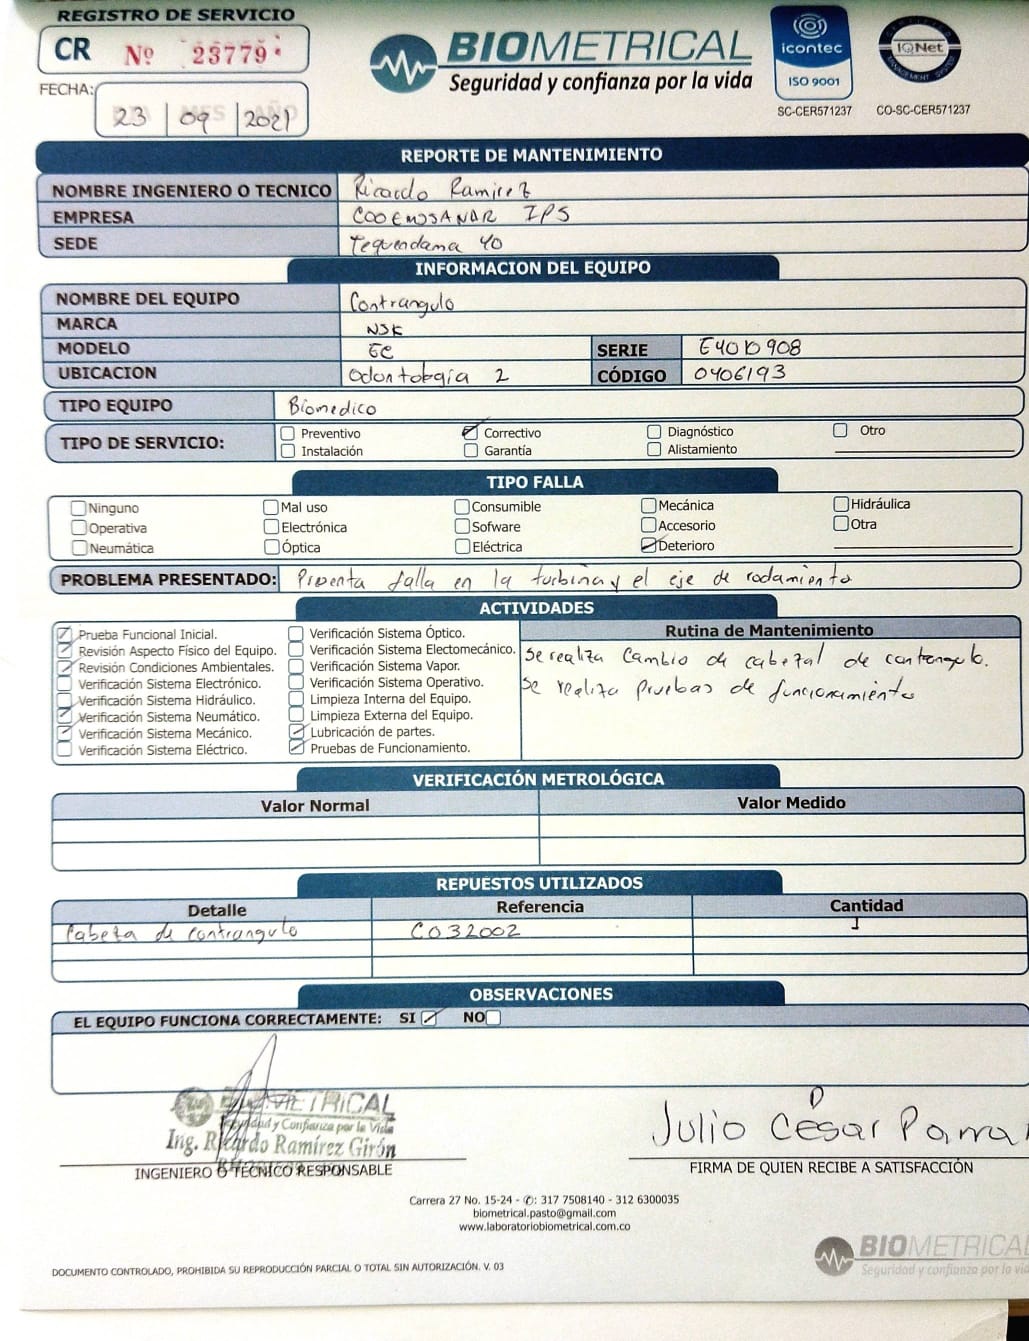 REGISTRO DE SERVICIO
CR Nº 23779
BIOMETRICAL
Seguridad y confianza por la vida
icontec
ISO 9001
SC-CER571237
IQNet
CO-SC-CER571237
FECHA: 23 09 2021
REPORTE DE MANTENIMIENTO
NOMBRE INGENIERO O TECNICO Ricardo Ramirez
EMPRESA COOEMSSANAR IPS
SEDE Tequendama 40
INFORMACION DEL EQUIPO
NOMBRE DEL EQUIPO Contrangulo
MARCA NSK
MODELO EC SERIE E4010908
UBICACION Odontologia 2 CÓDIGO 0406193
TIPO EQUIPO Biomedico
TIPO DE SERVICIO: Preventivo Correctivo Diagnóstico Otro
Instalación Garantía Alistamiento
TIPO FALLA
Ninguno Mal uso Consumible Mecánica Hidráulica
Operativa Electrónica Sofware Accesorio Otra
Neumática Óptica Eléctrica Deterioro
PROBLEMA PRESENTADO: Presenta falla en la turbina y el eje de rodamiento
ACTIVIDADES
Prueba Funcional Inicial.
Revisión Aspecto Físico del Equipo.
Revisión Condiciones Ambientales.
Verificación Sistema Electrónico.
Verificación Sistema Hidráulico.
Verificación Sistema Neumático.
Verificación Sistema Mecánico.
Verificación Sistema Eléctrico.
Verificación Sistema Óptico.
Verificación Sistema Electomecánico.
Verificación Sistema Vapor.
Verificación Sistema Operativo.
Limpieza Interna del Equipo.
Limpieza Externa del Equipo.
Lubricación de partes.
Pruebas de Funcionamiento.
Rutina de Mantenimiento
Se realiza Cambio de cabezal de contrangulo.
Se realiza pruebas de funcionamiento
VERIFICACIÓN METROLÓGICA
Valor Normal Valor Medido
REPUESTOS UTILIZADOS
Detalle Referencia Cantidad
Cabeza de contrangulo C032002 1
OBSERVACIONES
EL EQUIPO FUNCIONA CORRECTAMENTE: SI NO
BIOMETRICAL
Seguridad y Confianza por la Vida
Ing. Ricardo Ramírez Girón
INGENIERO O TECNICO RESPONSABLE
Julio César Parra
FIRMA DE QUIEN RECIBE A SATISFACCIÓN
Carrera 27 No. 15-24 - ✆: 317 7508140 - 312 6300035
biometrical.pasto@gmail.com
www.laboratoriobiometrical.com.co
BIOMETRICAL
Seguridad y confianza por la vida
DOCUMENTO CONTROLADO, PROHIBIDA SU REPRODUCCIÓN PARCIAL O TOTAL SIN AUTORIZACIÓN. V. 03